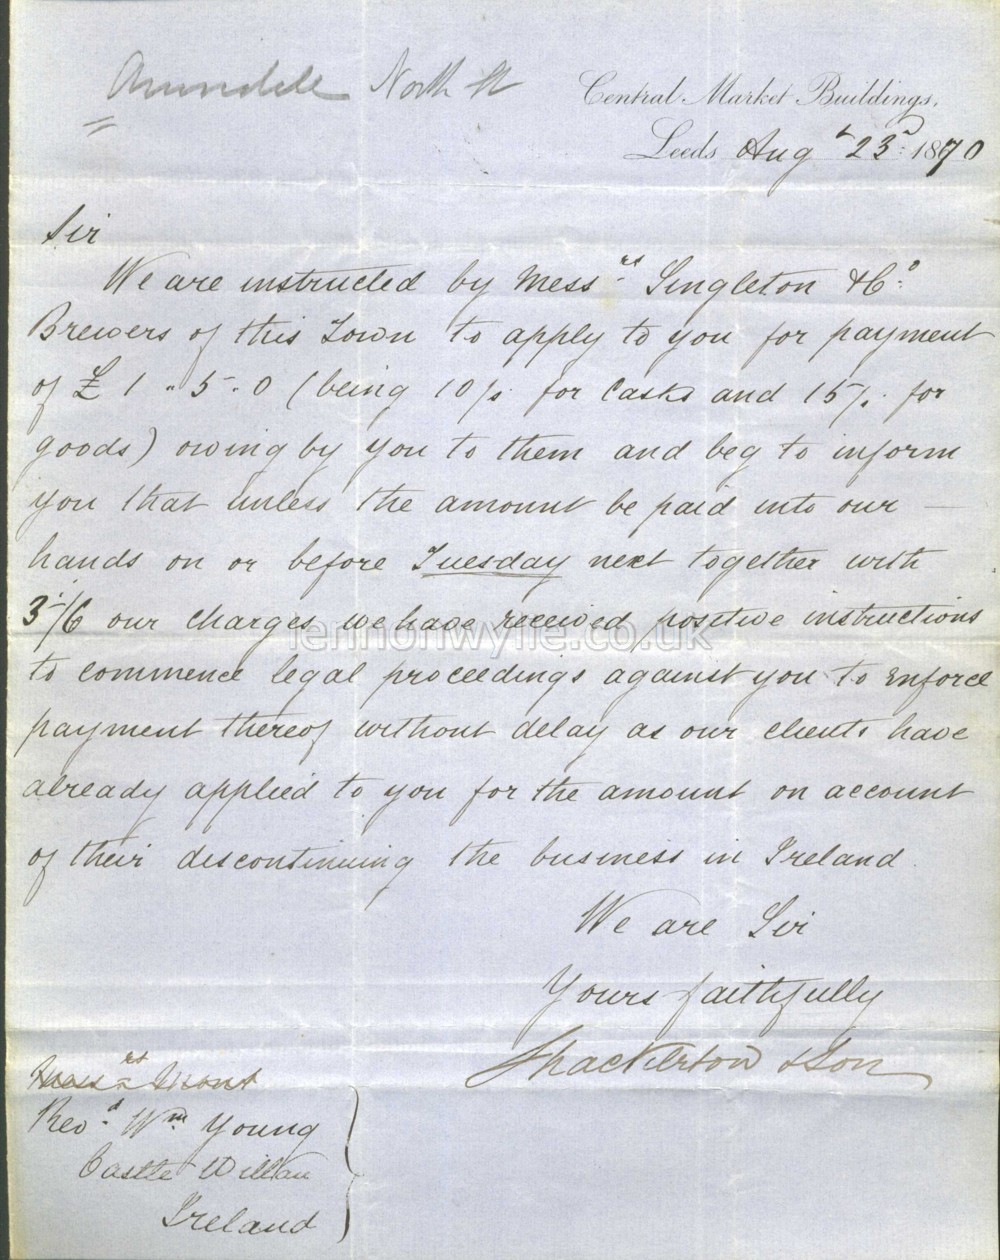 Arundele North St
Central Market Buildings,
Leeds Augt 23rd 1870
Sir
We are instructed by Messrs Singleton & Co.
Brewers of this Town to apply to you for payment
of £1 " 5 " 0 (being 10/. for Casks and 15/. for
goods) owing by you to them and beg to inform
you that unless the amount be paid into our —
hands on or before Tuesday next together with
3/6 our charges we have received positive instructions
lennonwylie.co.uk
to commence legal proceedings against you to enforce
payment thereof without delay as our clients have
already applied to you for the amount on account
of their discontinuing the business in Ireland
We are Sir
Yours faithfully
Shackleton & Son
Messrs
Revd. Wm. Young
Castle Willan
Ireland